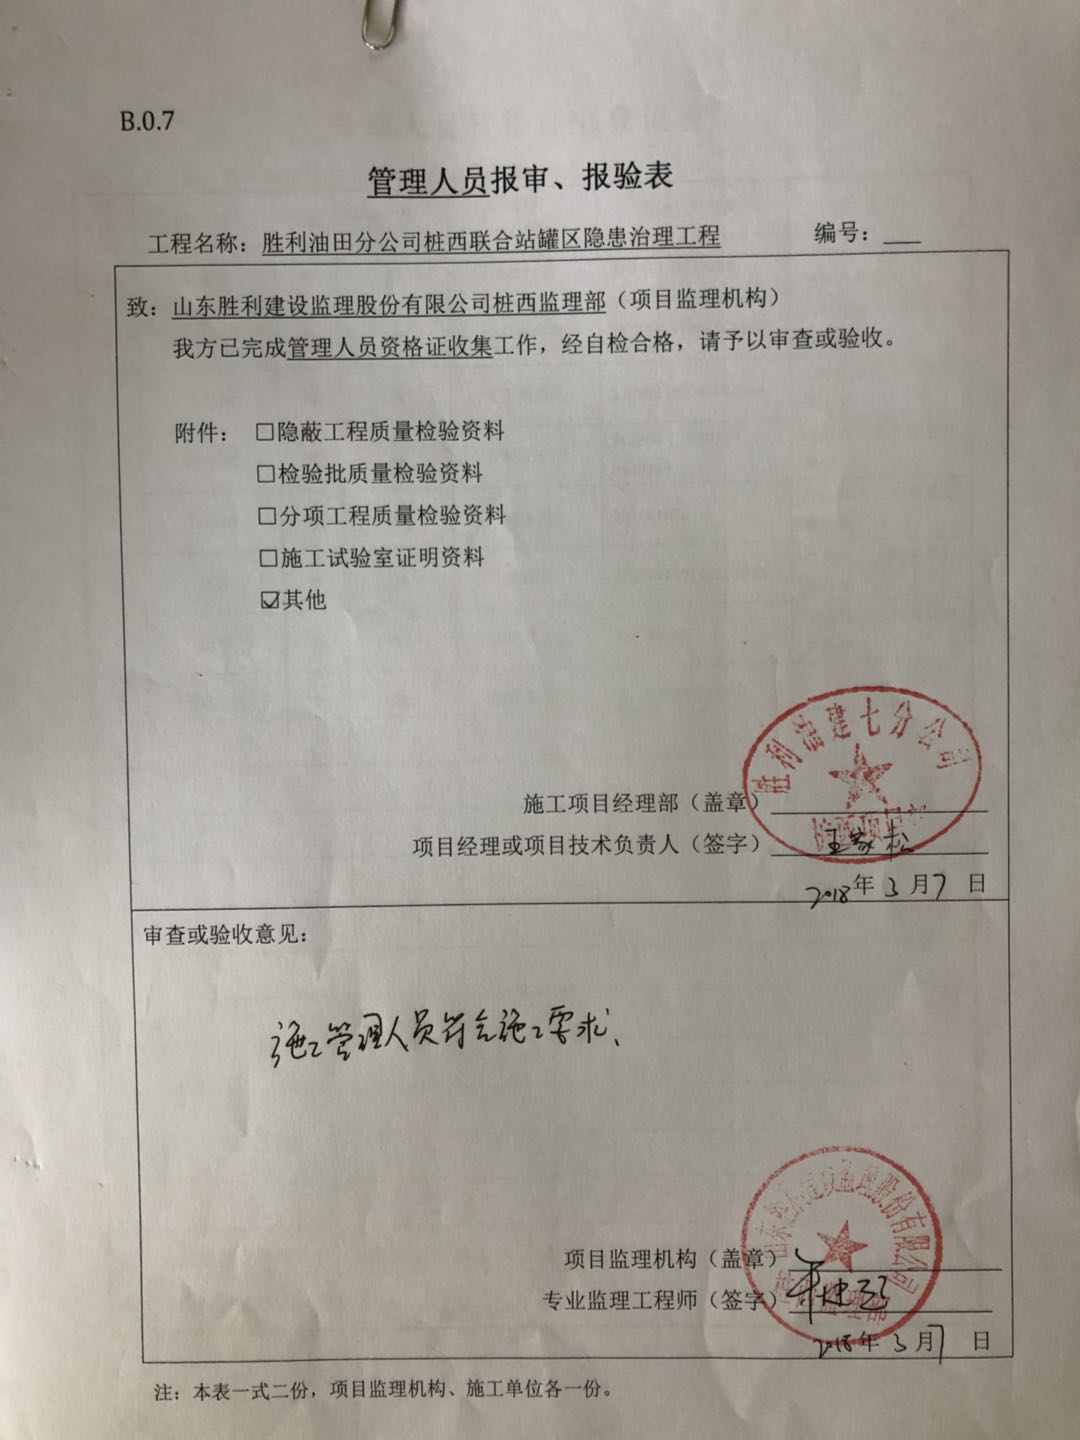 B.0.7
管理人员报审、报验表
工程名称：胜利油田分公司桩西联合站罐区隐患治理工程 编号：
致：山东胜利建设监理股份有限公司桩西监理部（项目监理机构）
我方已完成管理人员资格证收集工作，经自检合格，请予以审查或验收。
附件： □隐蔽工程质量检验资料
□检验批质量检验资料
□分项工程质量检验资料
□施工试验室证明资料
☑其他
胜利油建七分公司
施工项目经理部（盖章）
项目经理或项目技术负责人（签字） 王家松
2018年 3 月 7 日
审查或验收意见：
施工管理人员符合施工要求、
山东胜利建设监理股份有限公司
项目监理机构（盖章）
专业监理工程师（签字）
2018年 3 月 7 日
注：本表一式二份，项目监理机构、施工单位各一份。